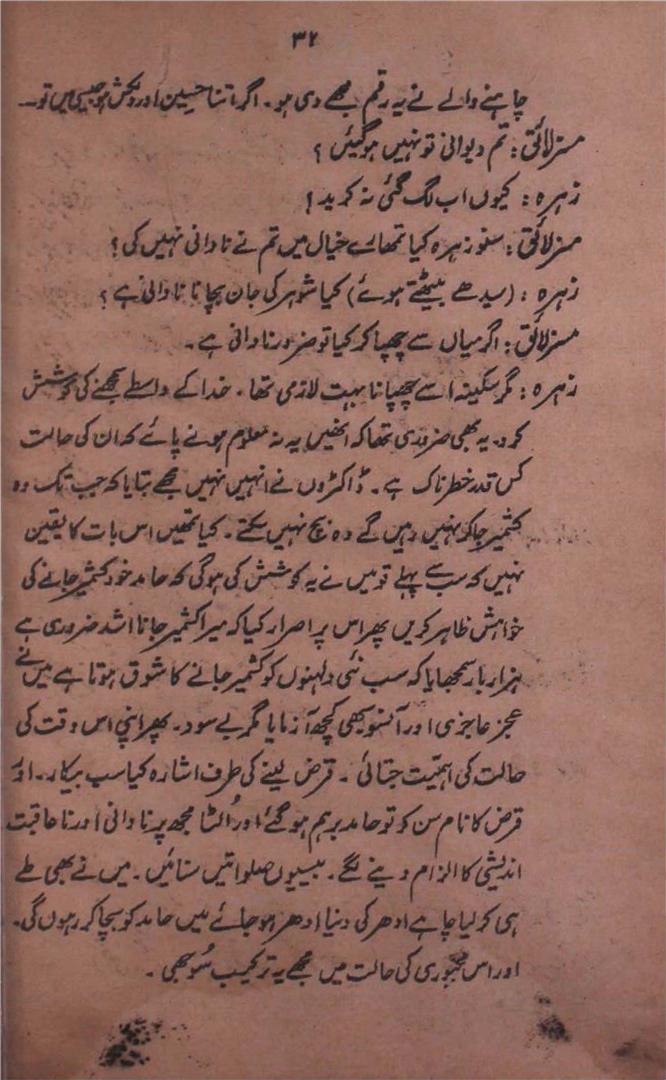 ۳۲
چاہنے والے نے یہ رقم مجھے دی ہو۔ اگر اتنا حسین اور دلکش ہو جیسی میں تو۔۔۔
مسز لائق : تم دیوانی تو نہیں ہو گئیں ؟
زہرہ : کیوں اب لگ گئی نہ کرید !
مسز لائق : سنو زہرہ کیا تمھارے خیال میں تم نے نادانی نہیں کی ؟
زہرہ : (سیدھے بیٹھتے ہوئے) کیا شوہر کی جان بچانا نادانی ہے ؟
مسز لائق : اگر میاں سے چھپا کر کیا تو ضرور نادانی ہے۔
زہرہ : مگر سکینہ اسے چھپانا بہت لازمی تھا۔ خدا کے واسطے سمجھنے کی کوشش
کرو۔ یہ بھی ضروری تھا کہ انھیں یہ نہ معلوم ہونے پائے کہ ان کی حالت
کس قدر خطرناک ہے۔ ڈاکٹروں نے انہیں نہیں مجھے بتایا کہ جب تک وہ
کشمیر جا کر نہیں رہیں گے وہ بچ نہیں سکتے۔ کیا تمھیں اس بات کا یقین
نہیں کہ سب سے پہلے تو میں نے یہ کوشش کی ہوگی کہ حامد خود کشمیر جانے کی
خواہش ظاہر کریں پھر اس پر اصرار کیا کہ میرا کشمیر جانا اشد ضروری ہے
ہزار بار سمجھایا کہ سب نئی دلہنوں کو کشمیر جانے کا شوق ہوتا ہے میں نے
عجز عاجزی اور آنسو بھی کچھ آزمایا مگر بے سود۔ پھر اپنی اس وقت کی
حالت کی اہمیت جتائی ۔ قرض لینے کی طرف اشارہ کیا سب بیکار۔۔ اور
قرض کا نام سن کو تو حامد برہم ہو گئے اور اُلٹا مجھ پر نادانی اور نا عاقبت
اندیشی کا الزام دینے لگے۔ بیسیوں صلواتیں سنائیں۔ میں نے بھی طے
ہی کر لیا چاہے ادھر کی دنیا ادھر ہو جائے میں حامد کو بچا کر رہوں گی۔
اور اس مجبوری کی حالت میں مجھے یہ ترکیب سُوجھی ۔